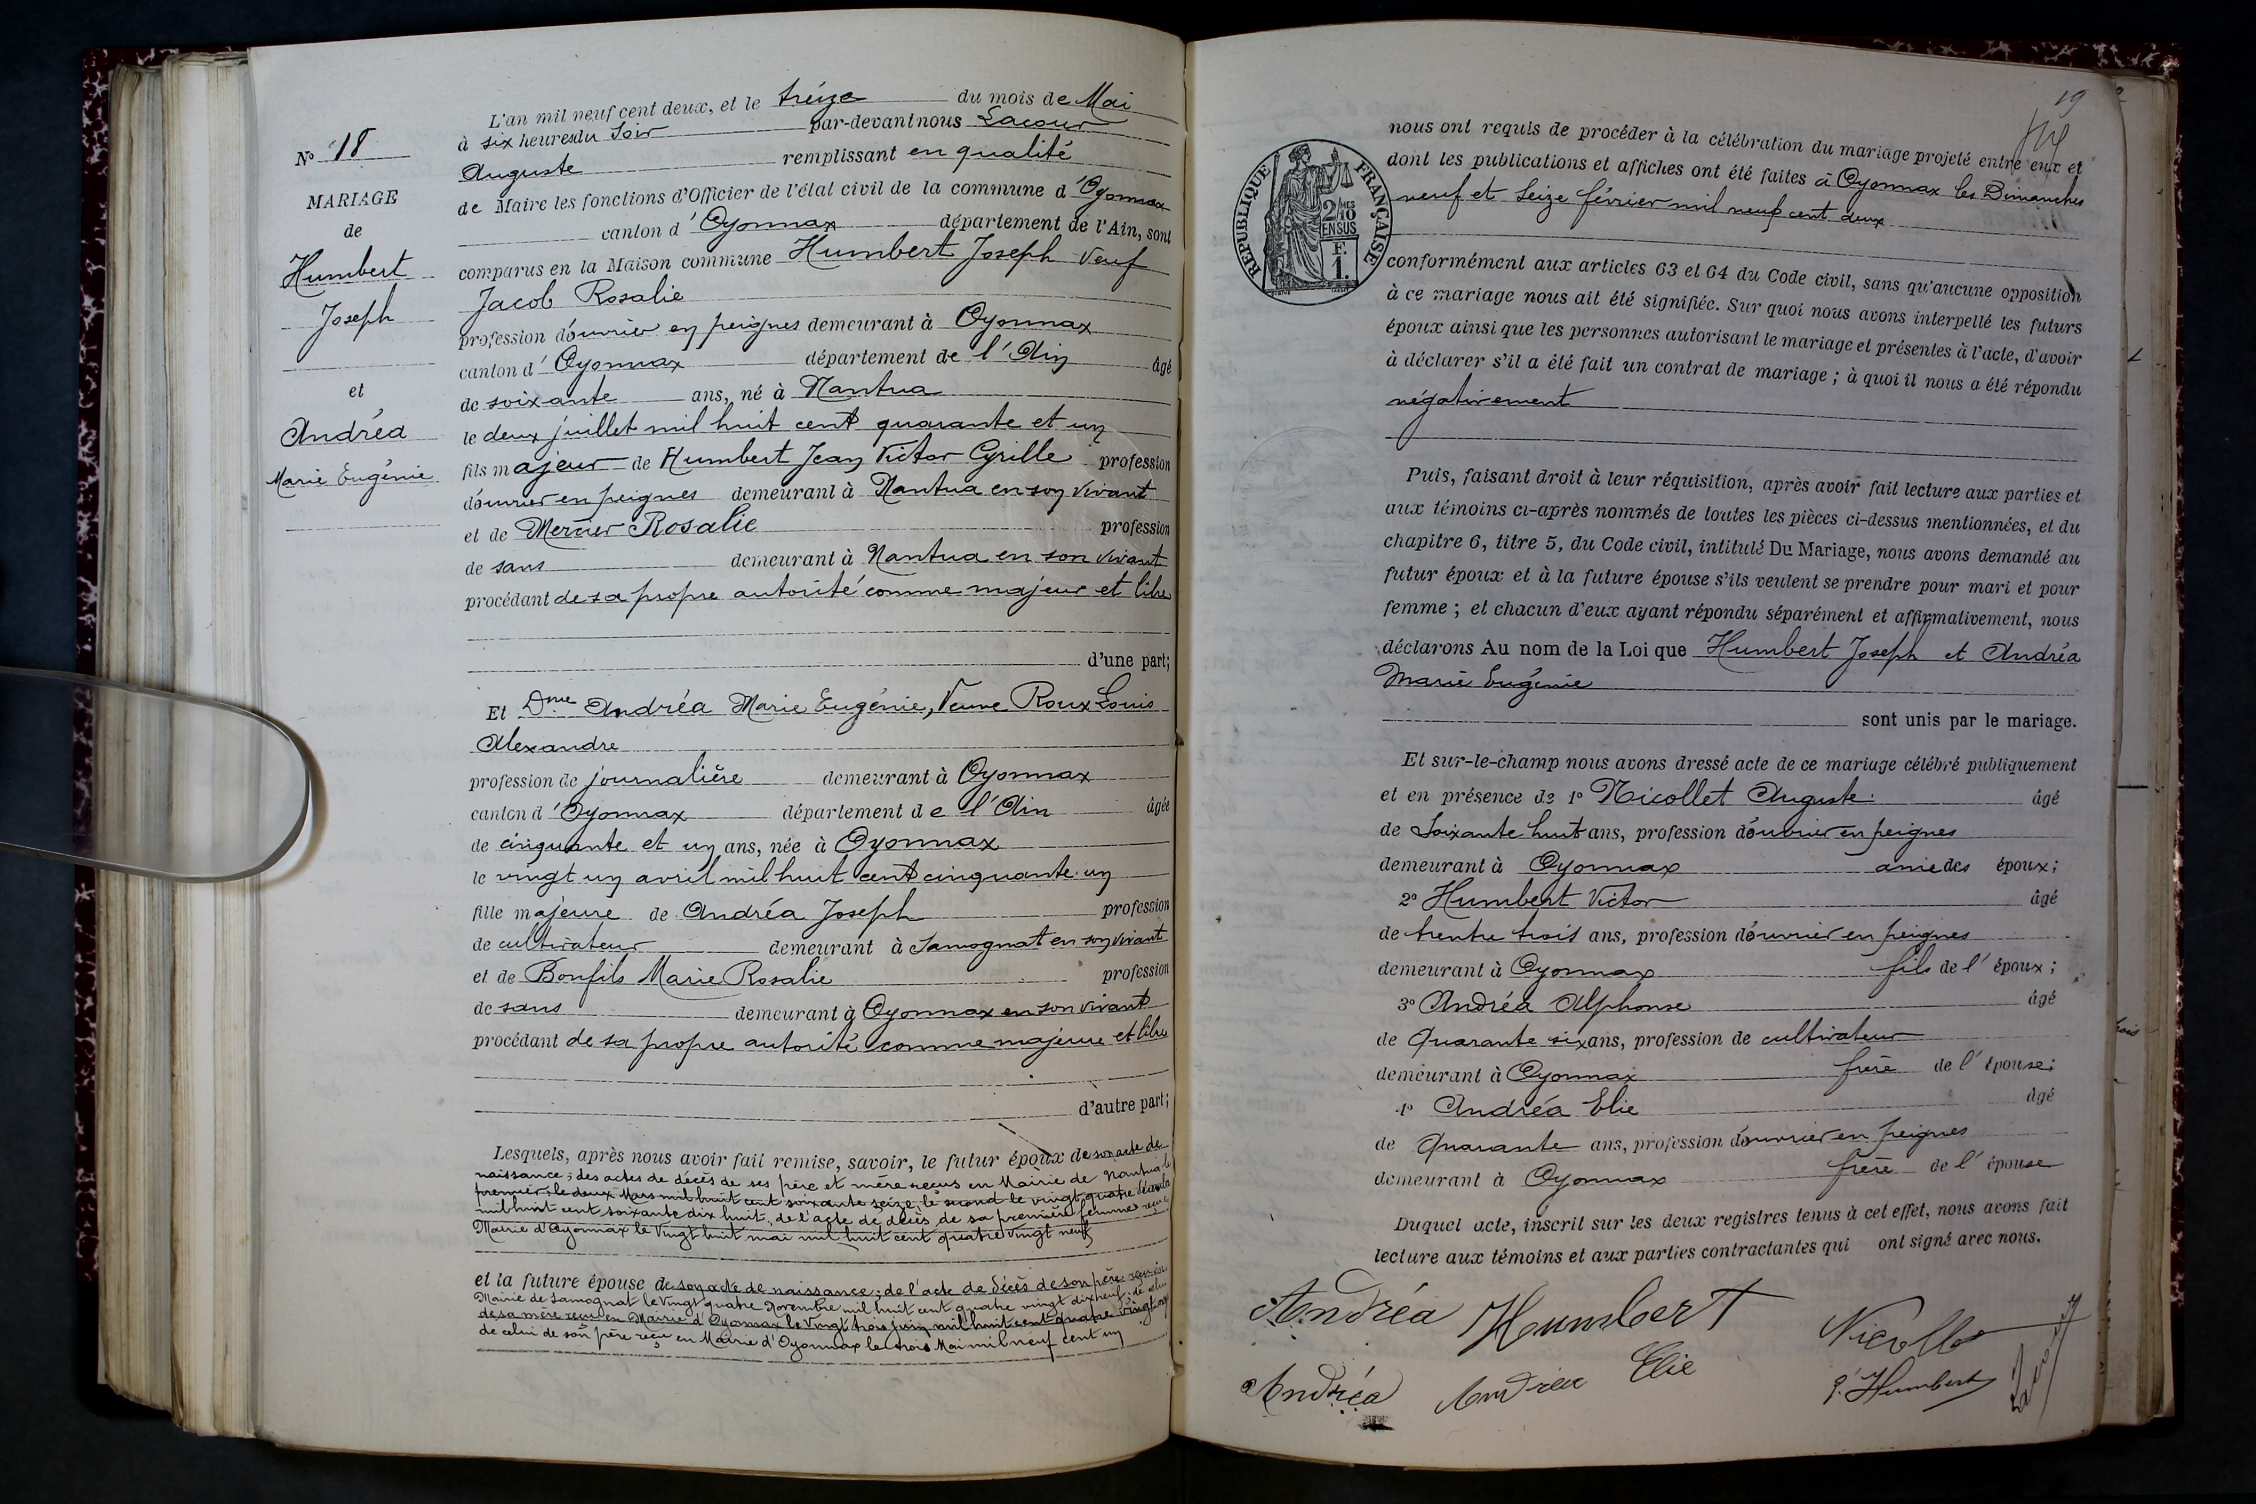 L'an mil neuf cent deux, et le treize du mois de Mai
à six heures du Soir par-devant nous Lacour
Auguste remplissant en qualité
de Maire les fonctions d'Officier de l'état civil de la commune d'Oyonnax
canton d'Oyonnax département de l'Ain, sont
comparus en la Maison commune Humbert Joseph Veuf
Jacob Rosalie
profession d'ouvrier en peignes demeurant à Oyonnax
canton d'Oyonnax département de l'Ain âgé
de soixante ans, né à Nantua
le deux juillet mil huit cent quarante et un
fils majeur de Humbert Jean Victor Cyrille profession
d'ouvrier en peignes demeurant à Nantua en son vivant
et de Mercier Rosalie profession
de sans demeurant à Nantua en son vivant
procédant de sa propre autorité comme majeur et libre
d'une part;
Et Dme Andréa Marie Eugénie, Veuve Roux Louis
Alexandre
profession de journalière demeurant à Oyonnax
canton d'Oyonnax département de l'Ain âgée
de cinquante et un ans, née à Oyonnax
le vingt un avril mil huit cent cinquante un
fille majeure de Andréa Joseph profession
de cultivateur demeurant à Samognat en son vivant
et de Bonfils Marie Rosalie profession
de sans demeurant à Oyonnax en son vivant
procédant de sa propre autorité comme majeure et libre
d'autre part;
Lesquels, après nous avoir fait remise, savoir, le futur époux de son acte de
naissance; des actes de décès de ses père et mère reçus en Mairie de Nantua le
premier, le deux Mars mil huit cent soixante seize, le second le vingt quatre Décembre
mil huit cent soixante dix huit, de l'acte de décès de sa première femme reçu
Mairie d'Oyonnax le Vingt huit mai mil huit cent quatre vingt neuf
et la future épouse de son acte de naissance; de l'acte de décès de son père reçu en
Mairie de Samognat le vingt quatre Novembre mil huit cent quatre vingt dix neuf; de celui
de sa mère reçu en Mairie d'Oyonnax le Vingt trois juin mil huit cent quatre vingt un
de celui de son père reçu en Mairie d'Oyonnax le trois Mai mil neuf cent un
No 18
MARIAGE
de
Humbert
Joseph
et
Andréa
Marie Eugénie
19
RÉPUBLIQUE FRANÇAISE
2/10MES
EN SUS
F.
1.
nous ont requis de procéder à la célébration du mariage projeté entre eux et
dont les publications et affiches ont été faites à Oyonnax les Dimanches
neuf et Seize février mil neuf cent deux
conformément aux articles 63 et 64 du Code civil, sans qu'aucune opposition
à ce mariage nous ait été signifiée. Sur quoi nous avons interpellé les futurs
époux ainsi que les personnes autorisant le mariage et présentes à l'acte, d'avoir
à déclarer s'il a été fait un contrat de mariage; à quoi il nous a été répondu
négativement
Puis, faisant droit à leur réquisition, après avoir fait lecture aux parties et
aux témoins ci-après nommés de toutes les pièces ci-dessus mentionnées, et du
chapitre 6, titre 5, du Code civil, intitulé Du Mariage, nous avons demandé au
futur époux et à la future épouse s'ils veulent se prendre pour mari et pour
femme; et chacun d'eux ayant répondu séparément et affirmativement, nous
déclarons Au nom de la Loi que Humbert Joseph et Andréa
Marie Eugénie
sont unis par le mariage.
Et sur-le-champ nous avons dressé acte de ce mariage célébré publiquement
et en présence de 1o Nicollet Auguste âgé
de Soixante huit ans, profession d'ouvrier en peignes
demeurant à Oyonnax ami des époux;
2o Humbert Victor âgé
de trentre trois ans, profession d'ouvrier en peignes
demeurant à Oyonnax fils de l'époux;
3o Andréa Alphonse âgé
de Quarante six ans, profession de cultivateur
demeurant à Oyonnax frère de l'épouse;
4o Andréa Elie âgé
de Quarante ans, profession d'ouvrier en peignes
demeurant à Oyonnax frère de l'épouse
Duquel acte, inscrit sur les deux registres tenus à cet effet, nous avons fait
lecture aux témoins et aux parties contractantes qui ont signé avec nous.
Andréa Humbert Nicollet
Andréa Andréa Elie Humbert